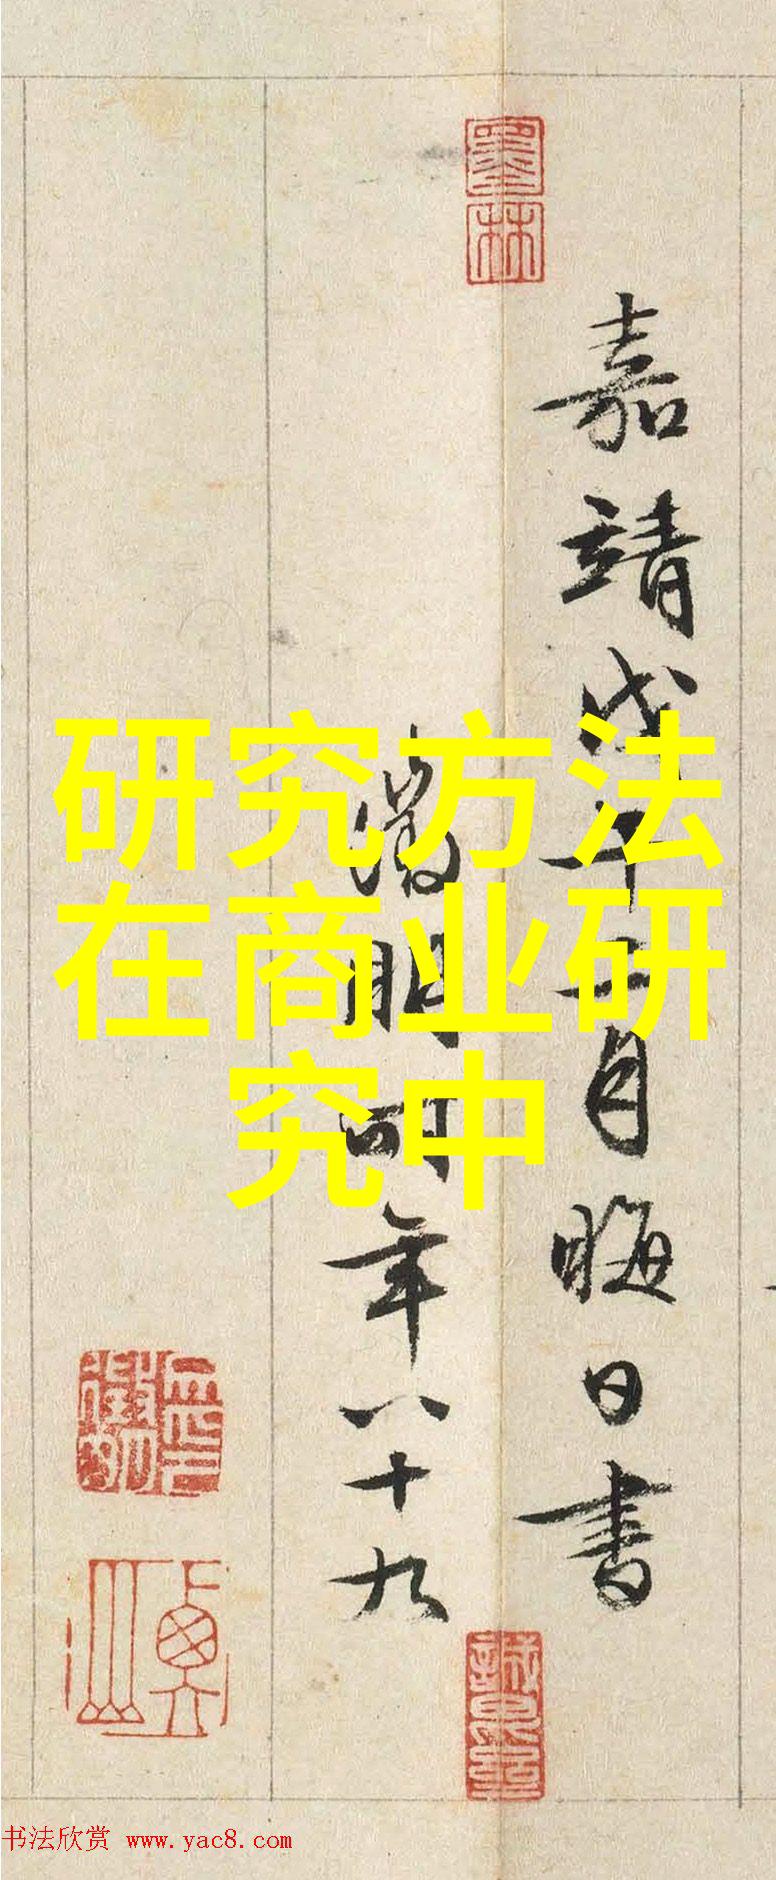 研究方法
在商业研
究中
嘉靖戊午二月晦日書
徵明時年八十九
墨林
书法欣赏 www.yac8.com